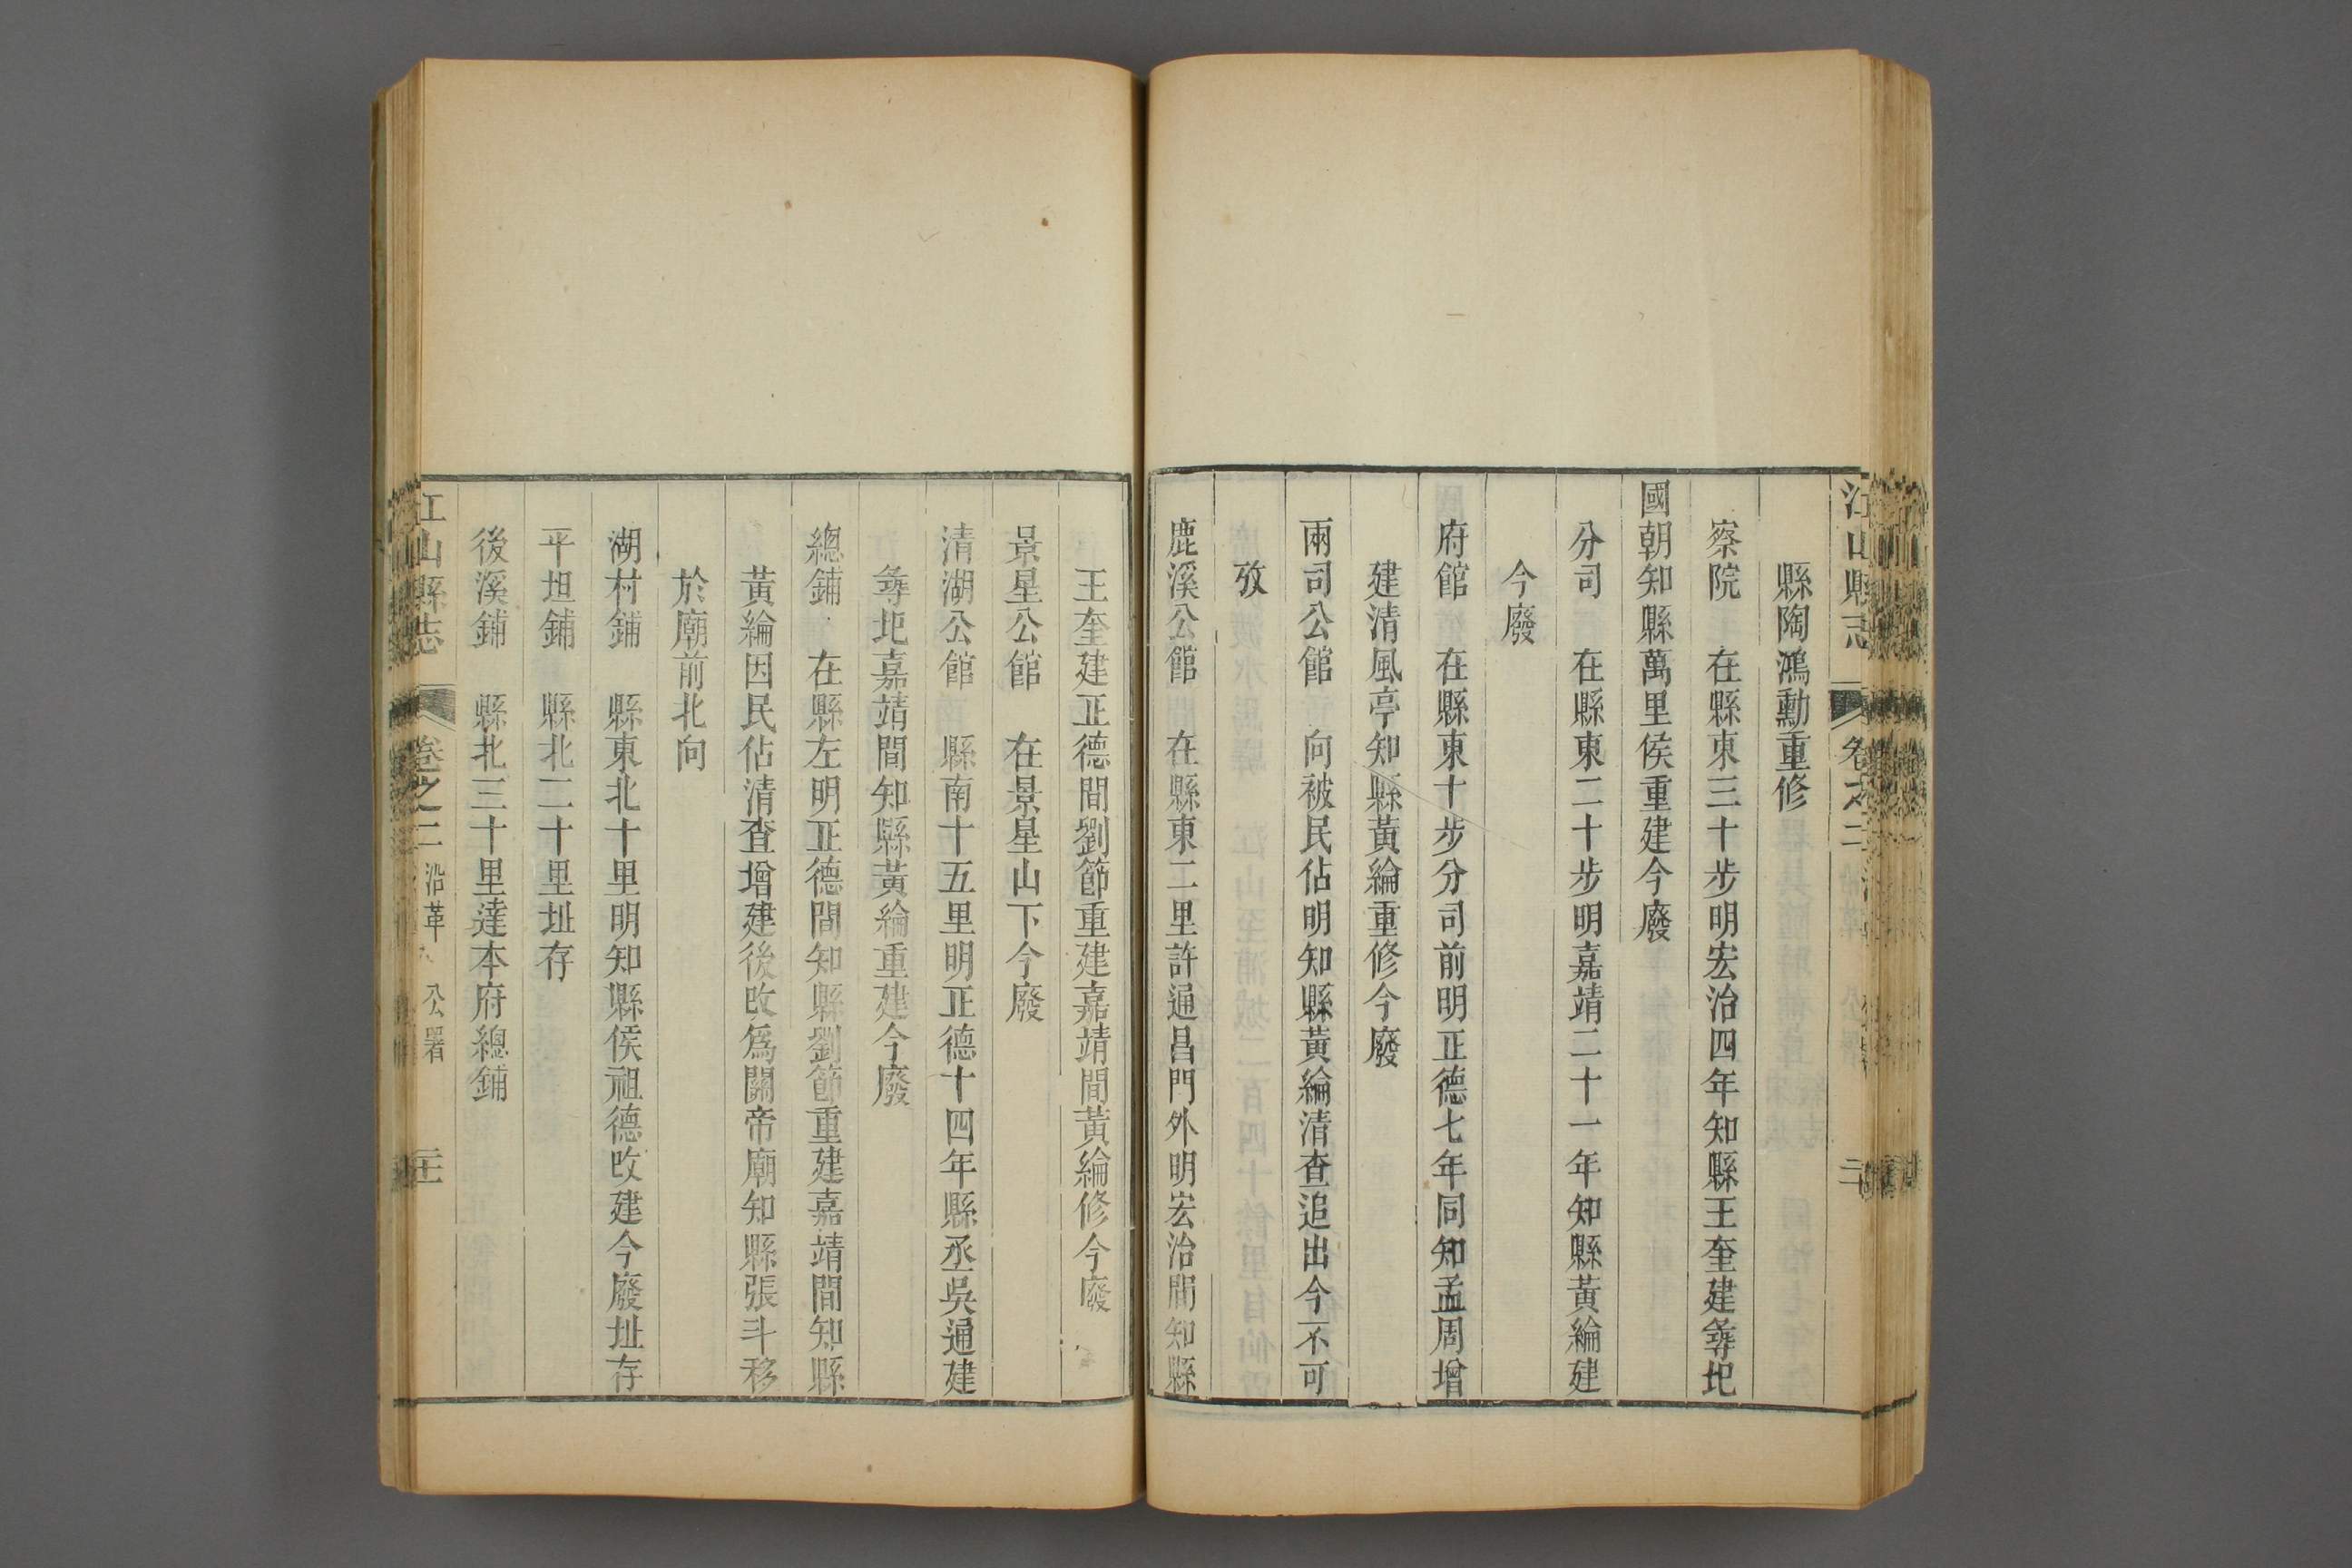 江山縣志 卷之二
縣陶鴻勳重修
察院 在縣東三十步明宏治四年知縣王奎建尋圯
國朝知縣萬里侯重建今廢
分司 在縣東二十步明嘉靖二十一年知縣黃綸建
今廢
府館 在縣東十步分司前明正德七年同知孟周增
建清風亭知縣黃綸重修今廢
兩司公館 向被民佔明知縣黃綸清查追出今不可
攷
鹿溪公館 在縣東二里許通昌門外明宏治間知縣
王奎建正德間劉節重建嘉靖間黃綸修今廢
景星公館 在景星山下今廢
清湖公館 縣南十五里明正德十四年縣丞吳通建
尋圯嘉靖間知縣黃綸重建今廢
總鋪 在縣左明正德間知縣劉節重建嘉靖間知縣
黃綸因民佔清查增建後改爲關帝廟知縣張斗移
於廟前北向
湖村鋪 縣東北十里明知縣侯祖德改建今廢址存
平坦鋪 縣北二十里址存
後溪鋪 縣北三十里達本府總鋪
江山縣志 卷之二 沿革 公署